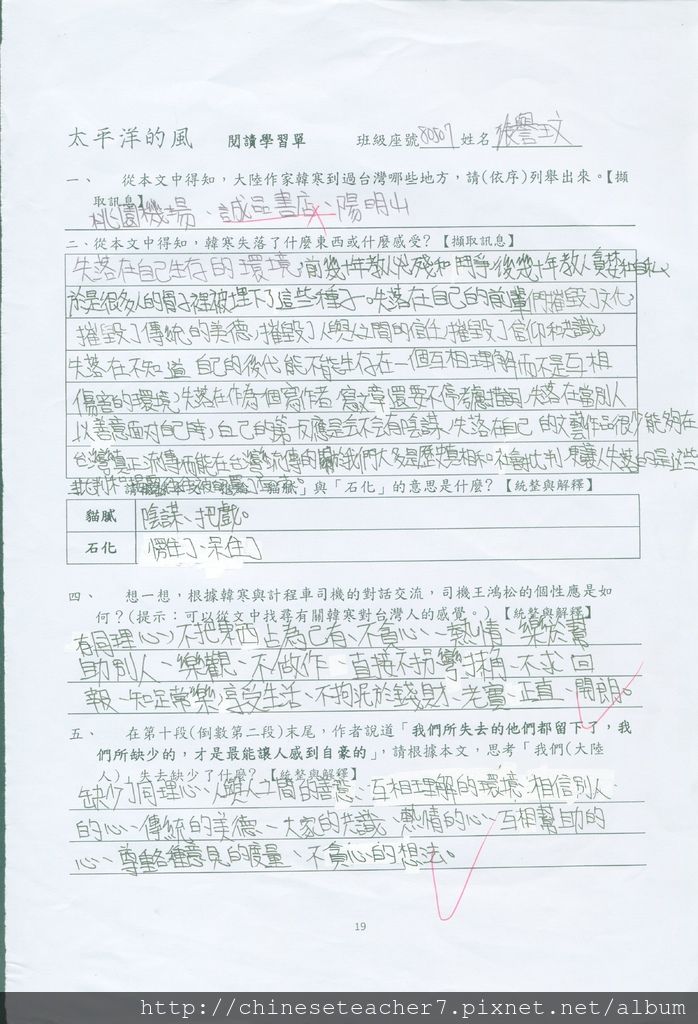 太平洋的風 閱讀學習單 班級座號80807 姓名張譽玟
一、 從本文中得知，大陸作家韓寒到過台灣哪些地方，請(依序)列舉出來。【擷
取訊息】
桃園機場、誠品書店、陽明山
二、從本文中得知，韓寒失落了什麼東西或什麼感受？【擷取訊息】
失落在自己生存的環境，前幾十年教人兇殘和鬥爭，後幾十年教人貪婪和自私，
於是很多人的骨子裡被埋下了這些種子。失落在自己的前輩們摧毀了文化，
摧毀了傳統的美德，摧毀了人與人之間的信任，摧毀了信仰和共識。
失落在不知道自己的後代能不能生存在一個互相理解而不是互相
傷害的環境，失落在作為個寫作者寫文章還要不停考慮措詞，失落在當別人
以善意面對自己時，自己的第一反應是會不會有陰謀，失落在自己的文藝作品很少能夠在
台灣真正流傳，而能在台灣流傳的關於我們大多是歷史真相和社會批判，更讓人失落的是這些
批判
」與「石化」的意思是什麼？【統整與解釋】
貓膩 陰謀、把戲。
石化 愣住了、呆住了
四、 想一想，根據韓寒與計程車司機的對話交流，司機王鴻松的個性應是如
何？(提示：可以從文中找尋有關韓寒對台灣人的感覺。)【統整與解釋】
有同理心、不把東西占為己有、不貪心、熱情、樂於幫
助別人、樂觀、不做作、直接不拐彎抹角、不求回
報、知足常樂、享受生活、不拘泥於錢財、老實、正直、開朗。
五、 在第十段(倒數第二段)末尾，作者說道「我們所失去的他們都留下了，我
們所缺少的，才是最能讓人感到自豪的」，請根據本文，思考「我們(大陸
人)」失去缺少了什麼？【統整與解釋】
缺少了同理心、人與人之間的善意、互相理解的環境、相信別人
的心、傳統的美德、大家的共識、熱情的心、互相幫助的
心、尊重各種意見的度量、不貪心的想法。
19
http://chineseteacher7.pixnet.net/album